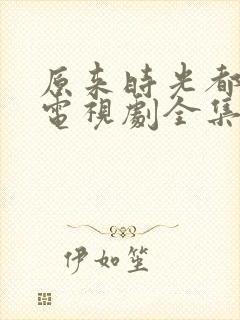 原来時光都
電視劇全集
伊如笙